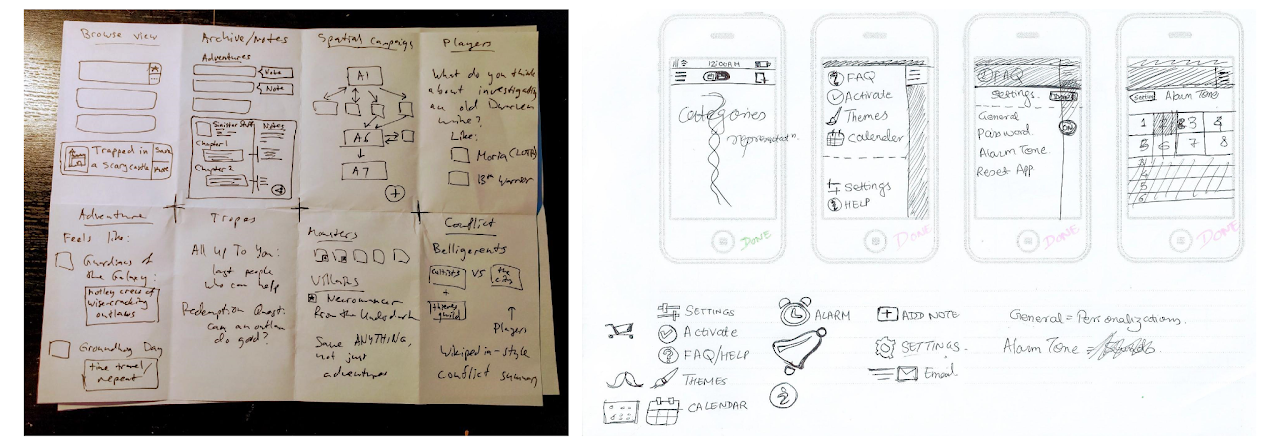 Browse view
Trapped in
a scary castle
Save
More
Archive/Notes
Adventures
Note
Note
Sinister Stuff
Notes
Chapter 1
Chapter 2
Spatial Campaign
A1
A6
A7
Players
What do you think
about investigating
an old Dwarven
mine?
Like:
Moria (LOTR)
13th Warrior
Adventure
Feels like:
Guardians of
the Galaxy:
motley crew of
wise-cracking
outlaws
Groundhog Day
time travel/
repeat
Tropes
All Up To You:
last people
who can help
Redemption Quest:
can an outlaw
do good?
Monsters
Villains
Necromancer
from the Underdark
Save ANYTHING,
not just
adventures
Conflict
Belligerents
cultists
VS
the
city
+
thieves
guild
Players
Wikipedia-style
conflict summary
12:00AM
Categories
DONE
FAQ
Activate
Themes
Calender
Settings
HELP
DONE
FAQ
Settings
DONE
General
ON
Password
Alarm Tone
Reset App
DONE
Setting
Alarm Tone
1 2 3 4
5 6 7 8
DONE
SETTINGS
Activate
FAQ/HELP
THEMES
CALENDAR
ALARM
ADD NOTE
SETTINGS.
Email
General = Personalizations.
Alarm Tone =